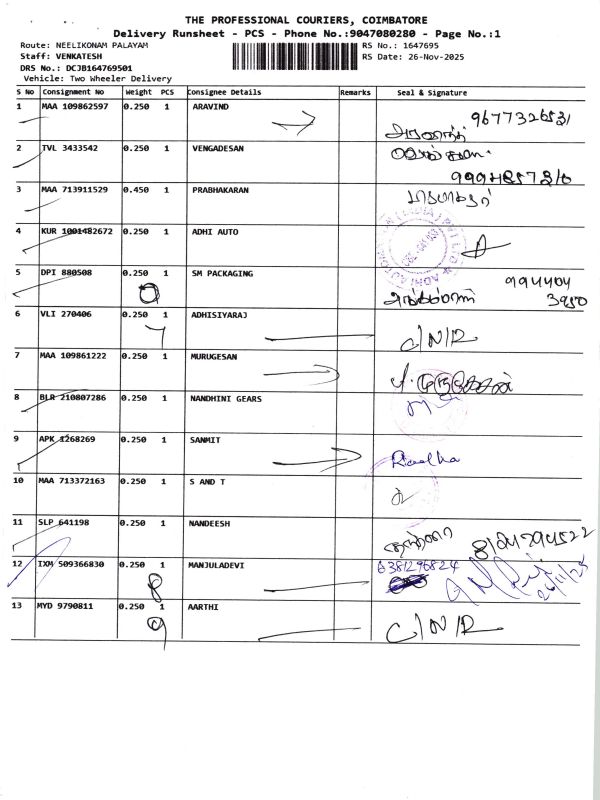 THE PROFESSIONAL COURIERS, COIMBATORE
Delivery Runsheet - PCS - Phone No.:9047080280 - Page No.:1
Route: NEELIKONAM PALAYAM
RS No.: 1647695
Staff: VENKATESH
RS Date: 26-Nov-2025
DRS No.: DCJB164769501
Vehicle: Two Wheeler Delivery
S No Consignment No Weight PCS Consignee Details Remarks Seal & Signature
1 MAA 109862597 0.250 1 ARAVIND 9677326531
2 TVL 3433542 0.250 1 VENGADESAN
3 MAA 713911529 0.450 1 PRABHAKARAN பிரபாகரன்
4 KUR 1001482672 0.250 1 ADHI AUTO
5 DPI 880508 0.250 1 SM PACKAGING
6 VLI 270406 0.250 1 ADHISIYARAJ C/N/R
7 MAA 109861222 0.250 1 MURUGESAN பி. முருகேசன்
8 BLR 210807286 0.250 1 NANDHINI GEARS
9 APK 1268269 0.250 1 SANMIT Raadha
10 MAA 713372163 0.250 1 S AND T
11 SLP 641198 0.250 1 NANDEESH
12 IXM 509366830 0.250 1 MANJULADEVI 6381296824 26/11/25
13 MYD 9790811 0.250 1 AARTHI C/N/R